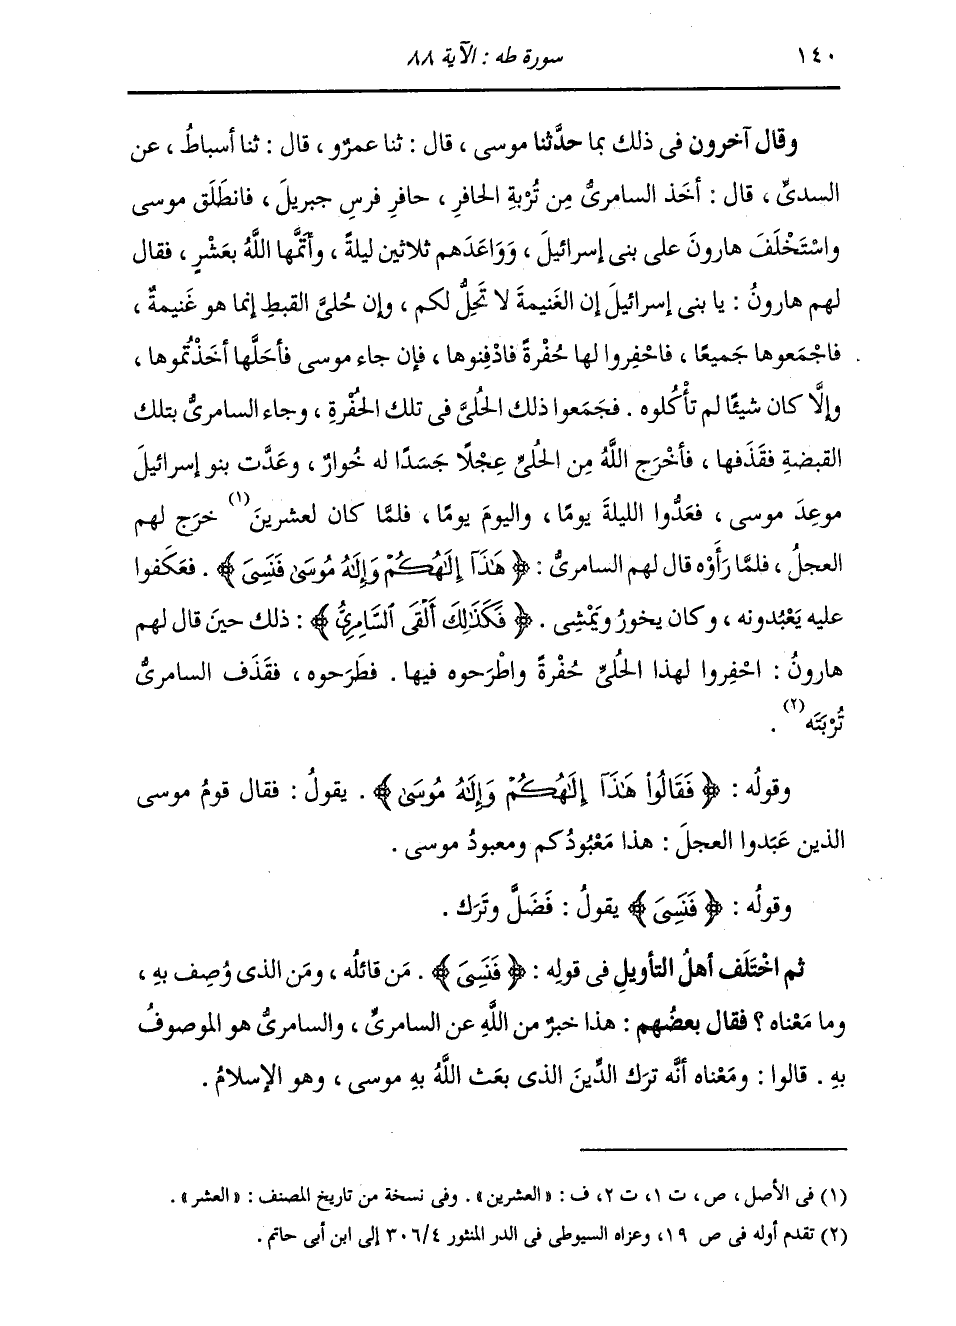 ١٤٠ سورة طه : الآية ٨٨
وقال آخرون فى ذلك بما حدَّثنا موسى ، قال : ثنا عمرٌو ، قال : ثنا أسباطُ ، عن
السدىِّ ، قال : أخَذ السامرىُّ مِن تُرْبةِ الحافرِ ، حافرِ فرسِ جبريلَ ، فانطَلَق موسى
واسْتَخْلَفَ هارونَ على بنى إسرائيلَ ، وَوَاعَدَهم ثلاثين ليلةً ، وأتَمَّها اللَّهُ بعَشْرٍ ، فقال
لهم هارونُ : يا بنى إسرائيلَ إن الغَنيمةَ لا تَحِلُّ لكم ، وإن حُلىَّ القبطِ إنما هو غَنيمةٌ ،
فاجْمَعوها جَميعًا ، فاحْفِروا لها حُفْرةً فادْفِنوها ، فإن جاء موسى فأحَلَّها أخَذْتُموها ،
وإلَّا كان شيئًا لم تأْكُلوه . فجَمَعوا ذلك الحُلىَّ فى تلك الحُفْرةِ ، وجاء السامرىُّ بتلك
القبضةِ فقَذَفها ، فأخْرَج اللَّهُ مِن الحُلىِّ عِجْلًا جَسَدًا له خُوارٌ ، وعَدَّت بنو إسرائيلَ
موعِدَ موسى ، فعَدُّوا الليلةَ يومًا ، واليومَ يومًا ، فلمَّا كان لعشرينَ(١) خرَج لهم
العجلُ ، فلمَّا رَأَوْه قال لهم السامرىُّ : ﴿ هَٰذَآ إِلَٰهُكُمْ وَإِلَٰهُ مُوسَىٰ فَنَسِىَ ﴾ . فعَكَفوا
عليه يَعْبُدونه ، وكان يخورُ ويَمْشِى . ﴿ فَكَذَٰلِكَ أَلْقَى ٱلسَّامِرِىُّ ﴾ : ذلك حينَ قال لهم
هارونُ : احْفِروا لهذا الحُلىِّ حُفْرةً واطْرَحوه فيها . فطَرَحوه ، فقَذَف السامرىُّ
تُرْبَتَه(٢) .
وقولُه : ﴿ فَقَالُوا۟ هَٰذَآ إِلَٰهُكُمْ وَإِلَٰهُ مُوسَىٰ ﴾ . يقولُ : فقال قومُ موسى
الذين عَبَدوا العجلَ : هذا مَعْبُودُكم ومعبودُ موسى .
وقولُه : ﴿ فَنَسِىَ ﴾ يقولُ : فَضَلَّ وتَرَك .
ثم اخْتَلَف أهلُ التأويلِ فى قولِه : ﴿ فَنَسِىَ ﴾ . مَن قائلُه ، ومَن الذى وُصِف بهِ ،
وما مَعْناه ؟ فقال بعضُهم : هذا خبرٌ من اللَّهِ عن السامرىِّ ، والسامرىُّ هو الموصوفُ
بهِ . قالوا : ومَعْناه أنَّه ترَك الدِّينَ الذى بعَث اللَّهُ بهِ موسى ، وهو الإسلامُ .
(١) فى الأصل ، ص ، ت ١، ت ٢، ف : « العشرين » . وفى نسخة من تاريخ المصنف : « العشر » .
(٢) تقدم أوله فى ص ١٩، وعزاه السيوطى فى الدر المنثور ٣٠٦/٤ إلى ابن أبى حاتم .